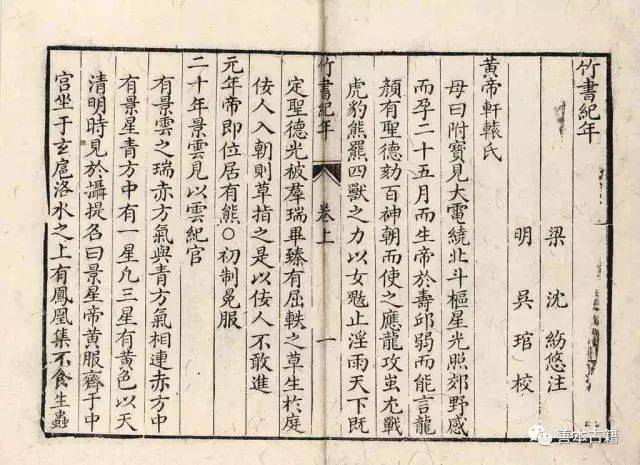 竹書紀年
梁 沈 約 注
明 吳 琯 校
黃帝軒轅氏
母曰附寶見大電繞北斗樞星光照郊野感
而孕二十五月而生帝於壽邱弱而能言龍
顏有聖德劾百神朝而使之應龍攻蚩尤戰
虎豹熊羆四獸之力以女魃止淫雨天下既
竹書紀年 卷上 一
定聖德光被羣瑞畢臻有屈軼之草生於庭
佞人入朝則草指之是以佞人不敢進
元年帝即位居有熊○初制冕服
二十年景雲見以雲紀官
有景雲之瑞赤方氣與青方氣相連赤方中
有景星青方中有一星凡三星有黃色以天
清明時見於攝提名曰景星帝黃服齋于中
宮坐于玄扈洛水之上有鳳凰集不食生蟲
善本古籍